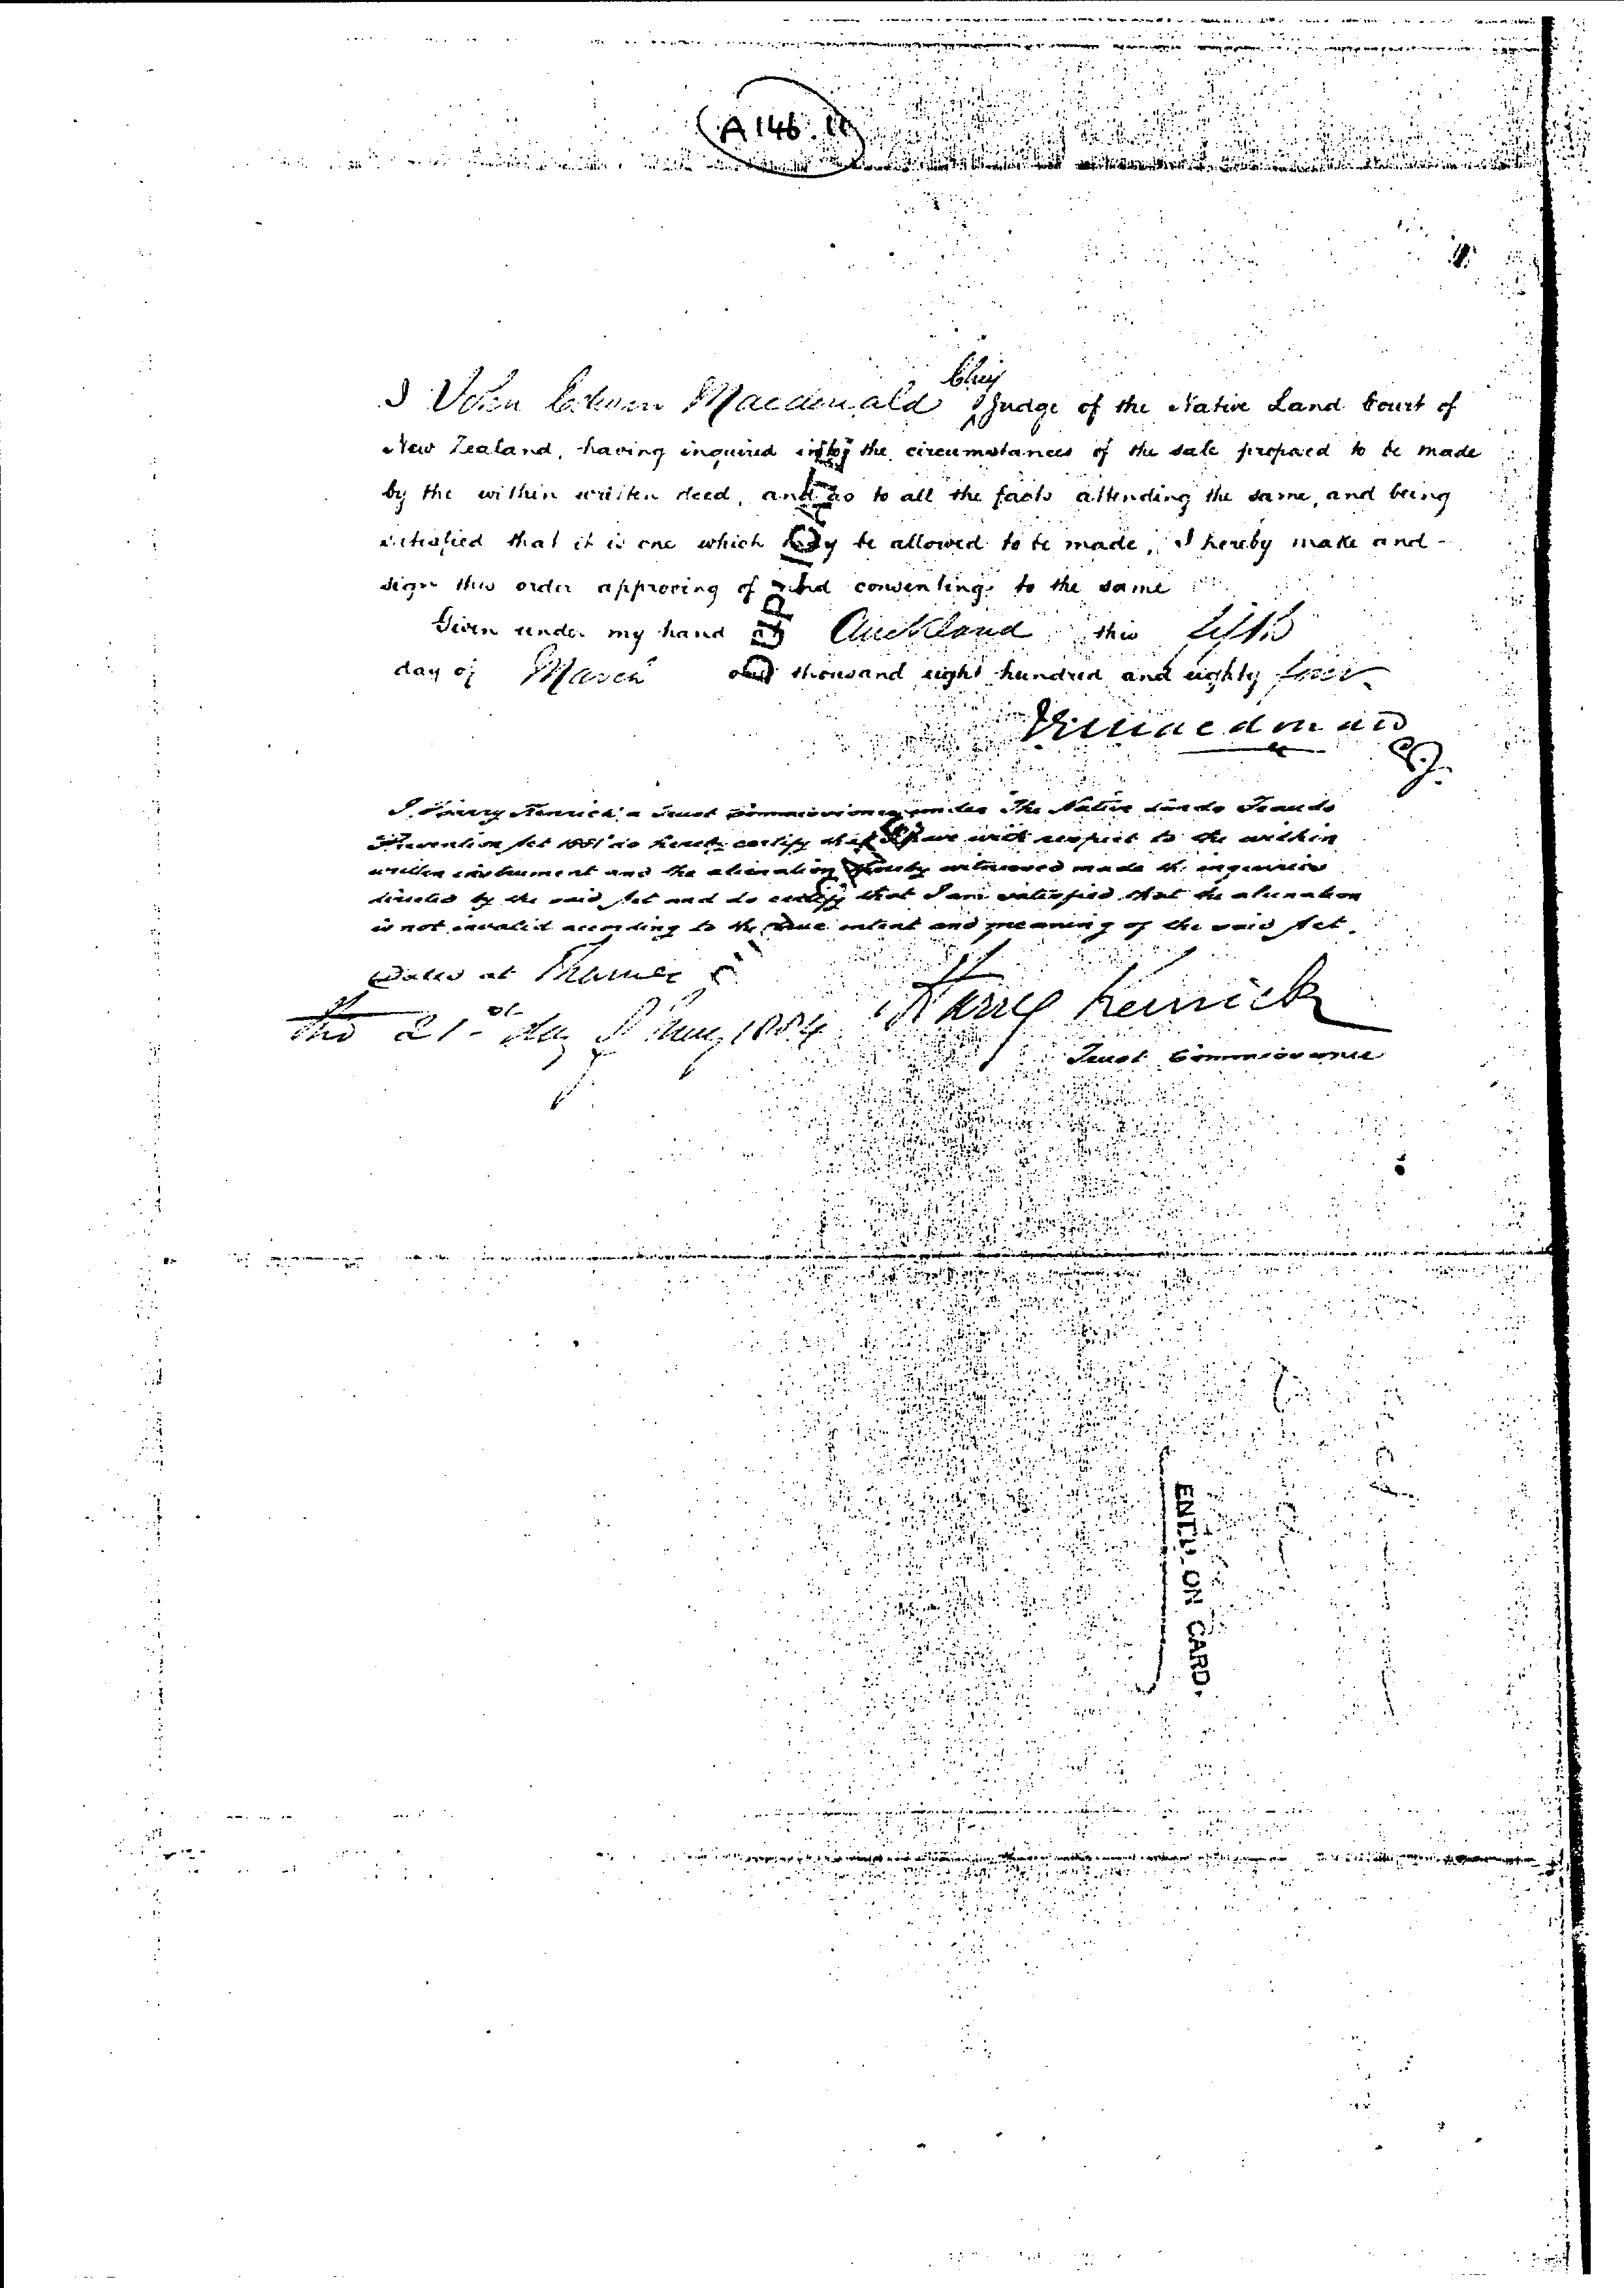 A 146.
I John Edwin Macdonald Chief Judge of the Native Land Court of
New Zealand, having inquired into the circumstances of the sale proposed to be made
by the within written deed, and as to all the facts attending the same, and being
satisfied that it is one which may be allowed to be made, I hereby make and
sign this order approving of and consenting to the same
Given under my hand at Auckland this fifth
day of March one thousand eight hundred and eighty four
DUPLICATE
I Harry Kenrick a Trust Commissioner under The Native Lands Frauds
Prevention Act 1881 do hereby certify that I have with respect to the within
written instrument and the alienation thereby witnessed made the inquiries
directed by the said Act and do certify that I am satisfied that the alienation
is not invalid according to the true intent and meaning of the said Act.
Dated at Thames
this 21st day of 1884 Harry Kenrick
Trust Commissioner
ENTD. ON CARD.